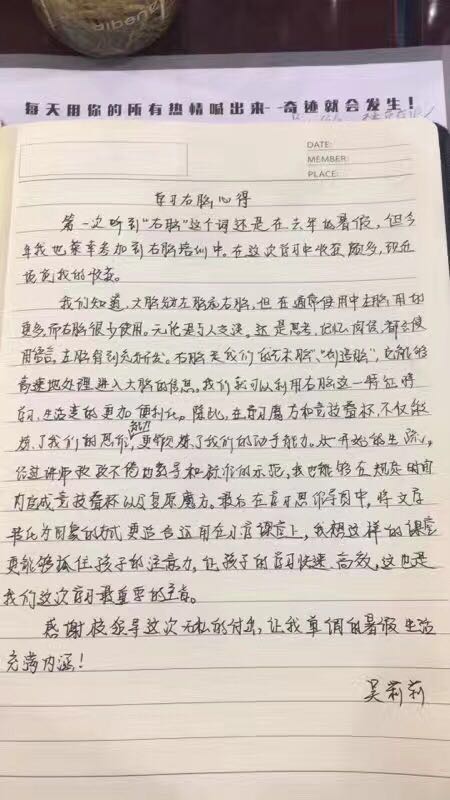 每天用你的所有热情喊出来--奇迹就会发生！
DATE:
MEMBER:
PLACE:
学习右脑心得
第一次听到"右脑"这个词还是在去年的暑假，但今
年我也荣幸参加到右脑培训中。在这次学习中收获颇多，现在
谈谈我的收获。
我们知道，大脑分左脑和右脑，但在通常使用中左脑用的
更多，而右脑很少使用。无论是与人交流，还是思考、记忆、阅读，都会使
用语言，左脑得到充分开发。右脑是我们的艺术脑，"创造脑"，它能够
高速地处理进入大脑的信息。我们就可以利用右脑这一特征将
学习、生活变的更加便利化。除此，在学习魔方和竞技叠杯，不仅锻
炼了我们的思维能力，更锻炼了我们的动手能力。从开始的生疏，
经过讲师孜孜不倦的教导和标准的示范，我也能够在规定时间
内完成竞技叠杯以及复原魔方。最后在学习思维导图中，将文字
转化为图象的方式更适合运用在语言课堂上，我想这样的课堂
更能够抓住孩子的注意力，让孩子的学习快速、高效，这也是
我们这次学习最重要的主旨。
感谢校领导这次无私的付出，让我单调的暑假生活
充满内涵！
吴莉莉